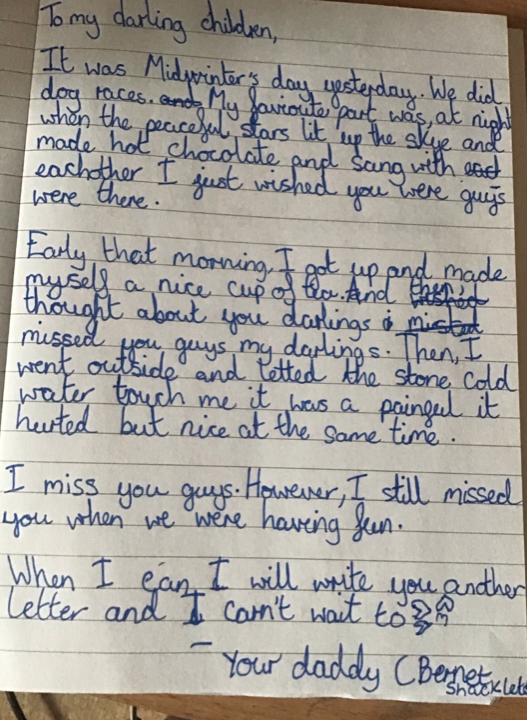 To my darling children,
It was Midwinter's day yesterday. We did
dog races. and My favioute part was, at night
when the peaceful stars lit up the skye and
made hot chocolate and sang with
eachother I just wished you were guys
were there.
Early that morning, I got up and made
myself a nice cup of tea. And
thought about you darlings i missed
missed you guys my darlings. Then, I
went outside and letted the stone cold
water touch me it was a paingul it
hurted but nice at the same time.
I miss you guys. However, I still missed
you when we were having fun.
When I can I will write you another
letter and I carn't wait to
- Your daddy (Bernet
Shacklet